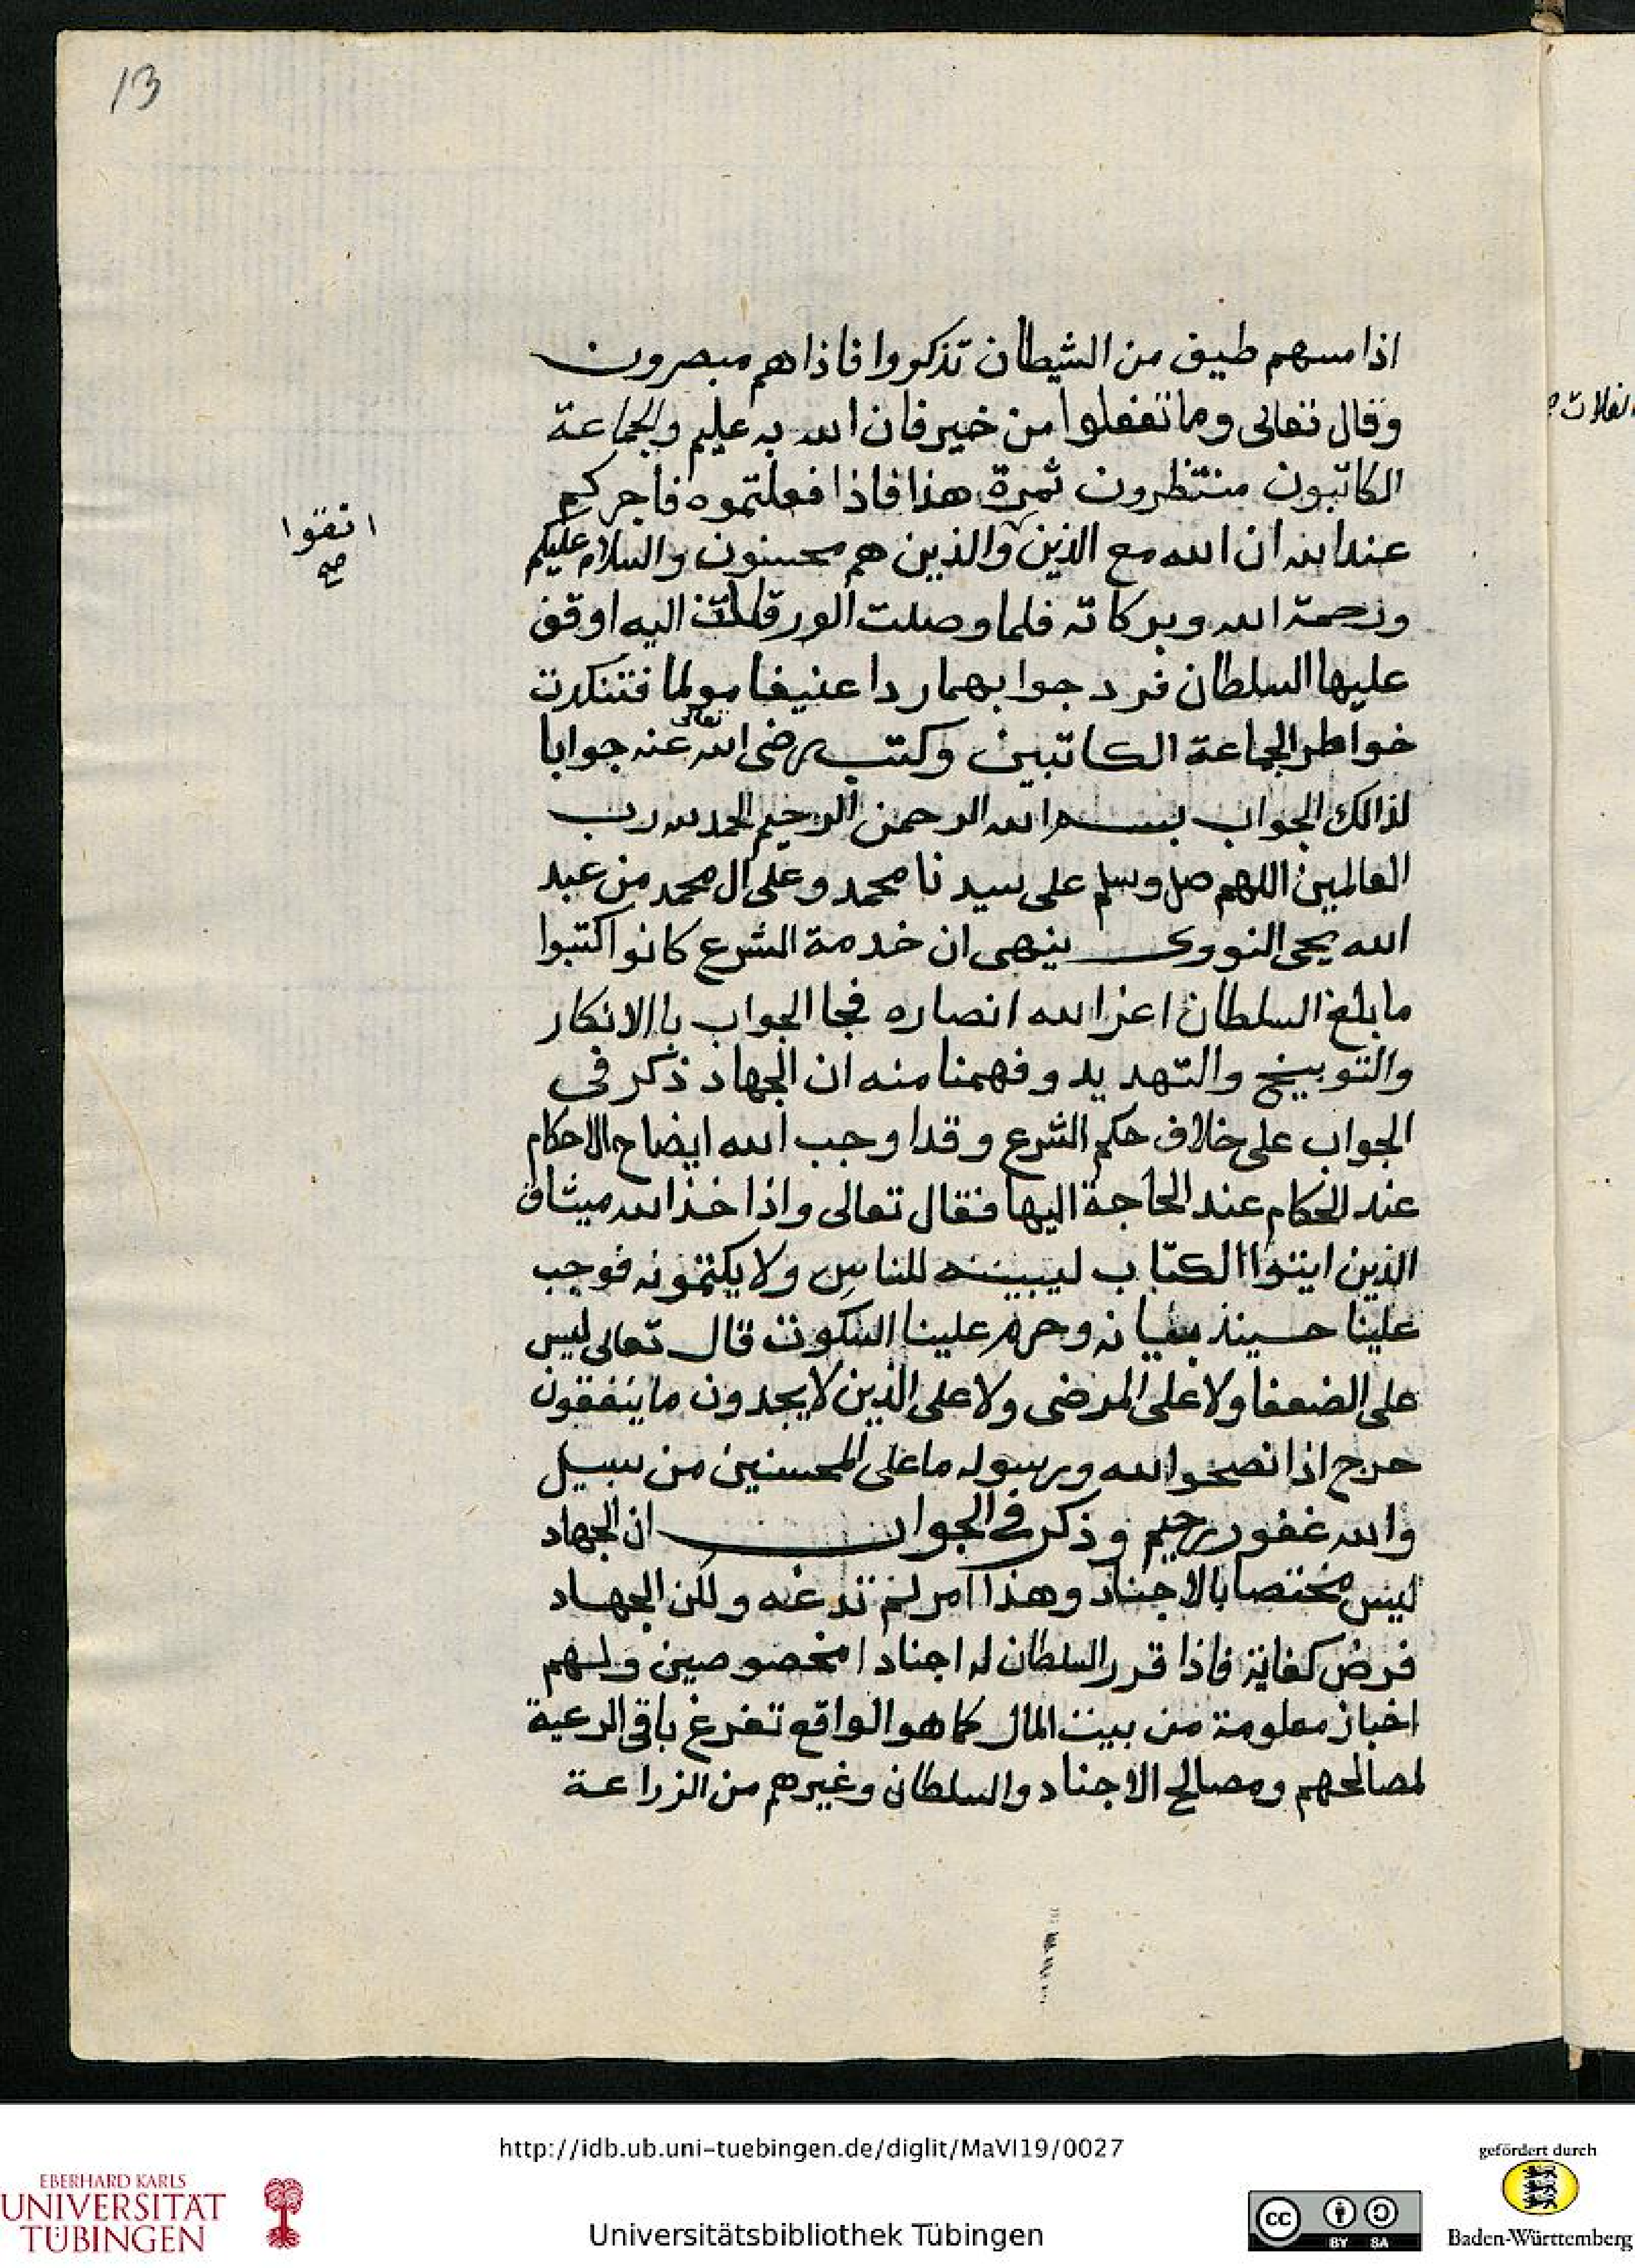 13
اذا مسهم طيف من الشيطان تذكروا فاذاهم مبصرون
وقال تعالى وما تفعلوا من خير فان الله به عليم والجماعة
الكاتبون منتظرون ثمرة هذا فاذا فعلتموه فأجركم
عند الله ان الله مع الذين والذين هم محسنون والسلام عليكم
اتقوا
صح
ورحمة الله وبركاته فلما وصلت الورقتان اليه اوقف
عليها السلطان فرد جوابهما ردا عنيفا مولما فتنكرت
خواطر الجماعة الكاتبين وكتب رضى الله تعالى عنه جوابا
لذالك الجواب بسم الله الرحمن الرحيم الحمد لله رب
العالمين اللهم صل وسلم على سيدنا محمد وعلى ال محمد من عبد
الله يحى النووى ينهى ان خدمة الشرع كانوا كتبوا
ما بلغ السلطان اعز الله انصاره فجا الجواب باالانكار
والتوبيخ والتهديد وفهمنا منه ان الجهاد ذكر فى
الجواب على خلاف حكم الشرع وقد اوجب الله ايضاح الاحكام
عند الحكام عند الحاجة اليها فقال تعالى واذ اخذ الله ميثاق
الذين ايتوا الكتاب ليبيننه للناس ولا يكتمونه فوجب
علينا حسينذ بيانه وحرم علينا السكوت قال تعالى ليس
على الضعفا ولا على المرضى ولا على الذين لا يجدون ما ينفقون
حرج اذا نصحوا لله ورسوله ما على المحسنين من سبيل
والله غفور رحيم وذكر فى الجواب ان الجهاد
ليس مختصا بالاجناد وهذا امر لم ندعه ولكن الجهاد
فرض كفاية فاذا قرر السلطان له اجنادا مخصوصين ولهم
اخباز معلومة من بيت المال كما هو الواقع تفرغ باقى الرعية
لمصالحهم ومصالح الاجناد والسلطان وغيرهم من الزراعة
http://idb.ub.uni-tuebingen.de/diglit/MaVI19/0027
Universitätsbibliothek Tübingen
EBERHARD KARLS
UNIVERSITÄT
TÜBINGEN
cc BY SA
gefördert durch
Baden-Württemberg